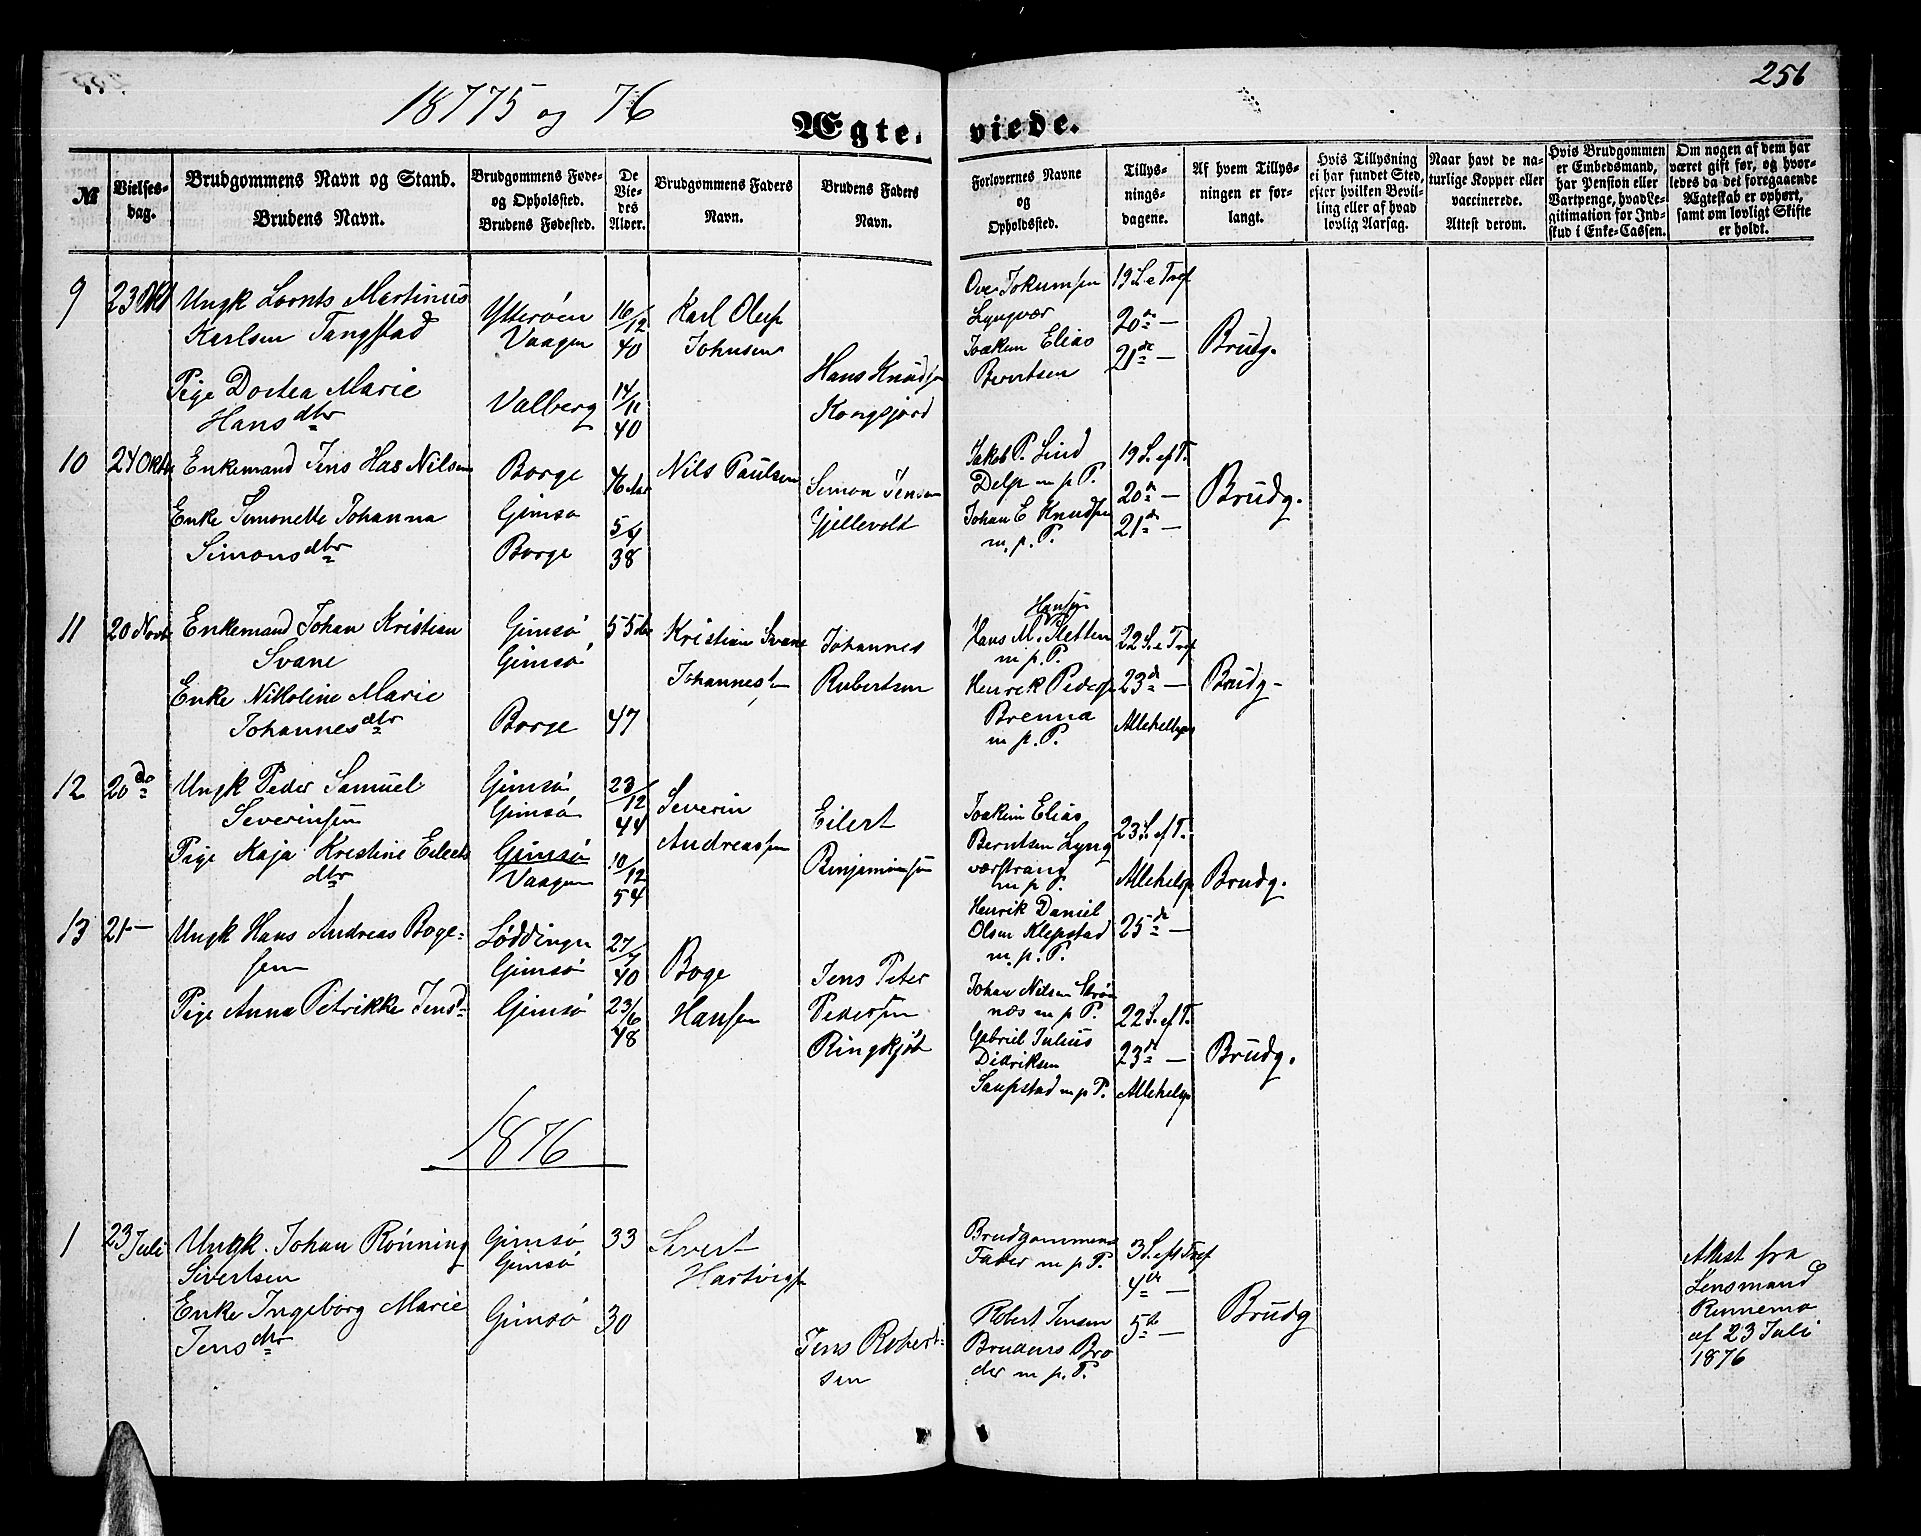 256
18775 og 76
Ægte= viede.
№
Vielses-
dag.
Brudgommens Navn og Stand.
Brudens Navn.
Brudgommens Føde-
og Opholssted.
Brudens Fødested.
De
Vie-
des
Alder.
Brudgommens Faders
Navn.
Brudens Faders
Navn.
Forlovernes Navne
og
Opholdssted.
Tillys-
nings-
dagene.
Af hvem Tillys-
ningen er for-
langt.
Hvis Tillysning
ei har fundet Sted,
efter hvilken Bevil-
ling eller af hvad
lovlig Aarsag.
Naar havt de na-
turlige Kopper eller
vaccinerede.
Attest derom.
Hvis Brudgommen
er Embedsmand,
har Pension eller
Vartpenge, hvad Le-
gitimation for Ind-
skud i Enke-Cassen.
Om nogen af dem har
været gift før, og hvor-
ledes da det foregaaende
Ægteskab er ophørt,
samt om lovligt Skifte
er holdt.
9
23 Okt
Ungk Lornts Martinus
Karlsen Tangstad
Pige Dortea Marie
Hansdtr
Ytterøen
Vaagen
Valberg
16/12
40
14/11
40
Karl Oluf
Johnsen
Hans Knudsen
Kongsjord
Ove Jokumsen
Lyngvær
Joakim Elias
Berntsen
19 S. e Tref
20de —
21de —
Brudg.
10
24 Oktr
Enkemand Jens Has Nilsen
Enke Simonette Johanna
Simonsdtr
Borge
Gimsø
Borge
46 Aar
5/4
38
Nils Paulsen
Simon Jensen
Gjellevold
Jakob P. Lind
Delp m p P.
Johan E Knudsen
m. p. P.
19 S. ef T.
20de —
21de —
Brudg.
11
20 Novbr
Enkemand Johan Kristian
Svane
Enke Nikoline Marie
Johannesdtr
Gimsø
Gimsø
Borge
55
47
Kristian Svane
Johannes
Robertsen
Hansen
Hans M. Sletten
m p. P.
Henrik Peders
Brenna
m p. P.
22 S. e Tref
23de —
Allehelgs
Brudg —
12
20 do
Ungk Peder Samuel
Severinsen
Pige Kaja Kristine Eilerts
dtr
Gimsø
Gimsø
Gimsø
Vaagen
23/12
44
10/12
54
Severin
Andreassen
Eilert
Binjaminsen
Joakim Elias
Berntsen Lyng
værstrand
m p P.
Henrik Daniel
Olsen Klepstad
m. p. P.
23 S. ef T.
Allehelg
25de —
Brudg.
13
21 —
Ungk Hans Andreas Boge-
sen
Pige Anna Petrikke Jensd
Løddingen
Gimsø
Gimsø
27/7
40
23/6
48
Boge
Hansen
Jens Peter
Pedersen
Ringskjøt
Johan Nilsen Strøm
næs m p P.
Gabriel Julius
Didriksen
Saupstad m p P.
22 S. ef T.
23de —
Allehelg
Brudg.
1876
1
23 Juli
Ungk. Johan Rønning
Sivertsen
Enke Ingeborg Marie
Jensdtr
Gimsø
Gimsø
Gimsø
33
30
Sivert
Hartvigs
Jens Robert-
sen
Brudgommens
Fader m p P.
Robert Jensen
Brudens Bro
der m p. P.
3 S. eft Tref
4de —
5te —
Brudg
Attest fra
Lensmand
Rinnemo
af 23 Juli
1876